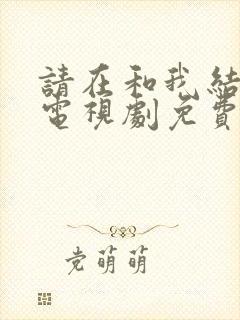 請在和我結
電視劇免費
党萌萌